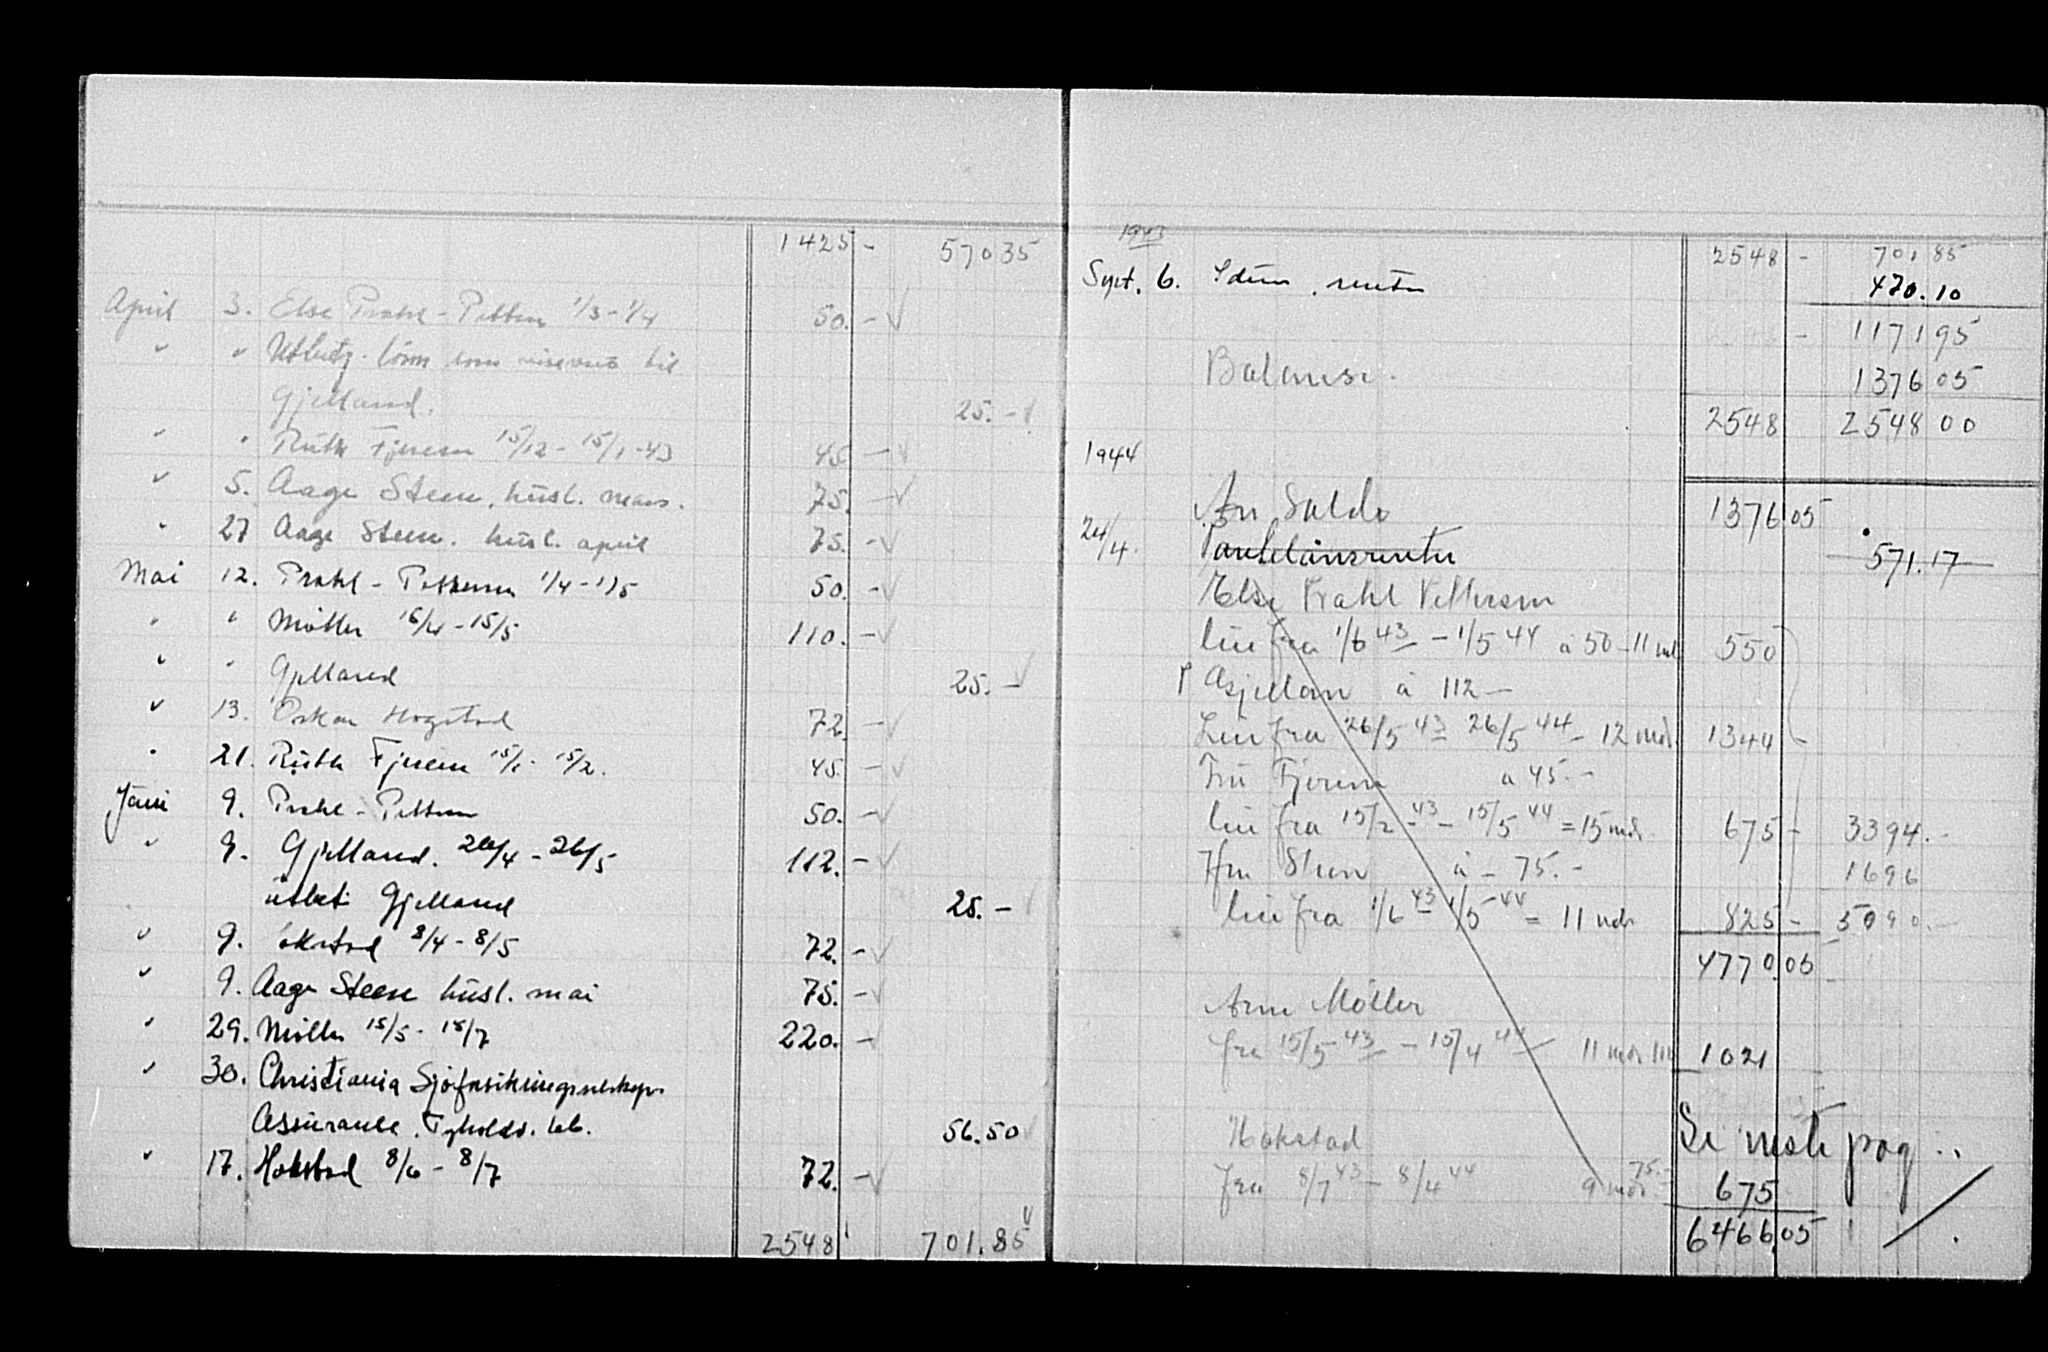 1425 - 57035
April 3. Else Prahl - Pettersen 1/3 - 1/4 50. -
" " Utbetg. til
Gjelland. 25. -
" " Ruth Fjørem 15/12 - 15/1 - 43 45 -
" 5. Aage Steen, husl. mars. 75. -
" 27 Aage Steen. husl. april 75. -
Mai 12. Prahl - Pettersen 1/4 - 1/5 50. -
" " Möller 15/4 - 15/5 110. -
" " Gjelland 25. -
" 13. Oskar 72. -
" 21. Ruth Fjørem 15/1 - 15/2. 45. -
Juni 9. Prahl - Pettersen 50. -
" 9. Gjelland. 26/4 - 26/5 112. -
utbet. Gjelland 25. -
" 9. 8/4 - 8/5 72. -
" 9. Aage Steen husl. mai 75. -
" 29. Möller 15/5 - 15/7 220. -
" 30. Christiania Sjøforsikringsselskap
Assurance. 56.50
" 17. Hokstad 8/6 - 8/7 72. -
2548 701.85
1943 2548 - 701,85
Sept. 6. Idun, renter 470.10
- 117195
Balanse. 137605
2548 2548 00
1944
An Saldo 1376 05
24/4. Panklånsrenter 571.17
Else Prahl Pettersen
leie fra 1/6 43 - 1/5 44 á 50 - 11 md 550
Gjelland á 112 -
Leie fra 26/5 43 26/5 44 - 12 mdr. 1344 -
Fru Fjørem á 45. -
leie fra 15/2 - 43 - 15/5 44 = 15 mdr. 675 - 3394. -
Hr Steen á - 75. - 1696
leie fra 1/6 43 1/5 - 44 = 11 mdr 825 - 5090. -
4770.05
Arne Möller
fra 15/5 43 - 15/4 44 11 mdr 1021
Se neste pag..
Hokstad
fra 8/7 43 - 8/4 44 9 mdr. 75. - 675
6466,05